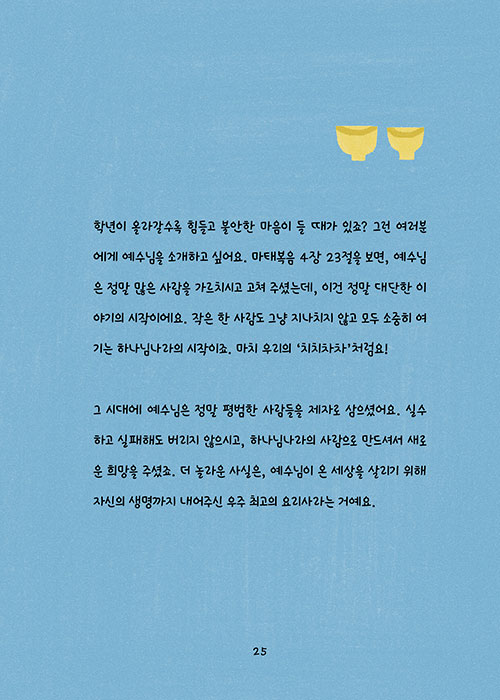 학년이 올라갈수록 힘들고 불안한 마음이 들 때가 있죠? 그런 여러분
에게 예수님을 소개하고 싶어요. 마태복음 4장 23절을 보면, 예수님
은 정말 많은 사람을 가르치시고 고쳐 주셨는데, 이건 정말 대단한 이
야기의 시작이에요. 작은 한 사람도 그냥 지나치지 않고 모두 소중히 여
기는 하나님나라의 시작이죠. 마치 우리의 ‘치치차차’처럼요!
그 시대에 예수님은 정말 평범한 사람들을 제자로 삼으셨어요. 실수
하고 실패해도 버리지 않으시고, 하나님나라의 사람으로 만드셔서 새로
운 희망을 주셨죠. 더 놀라운 사실은, 예수님이 온 세상을 살리기 위해
자신의 생명까지 내어주신 우주 최고의 요리사라는 거예요.
25